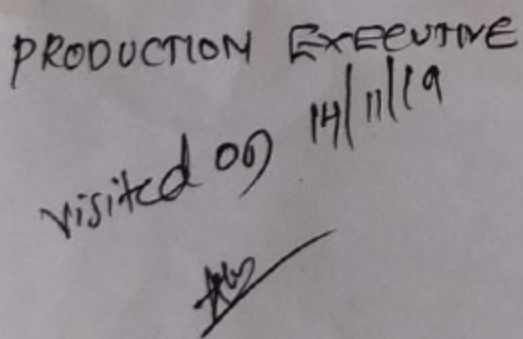 PRODUCTION EXECUTIVE
visited on 14/11/19